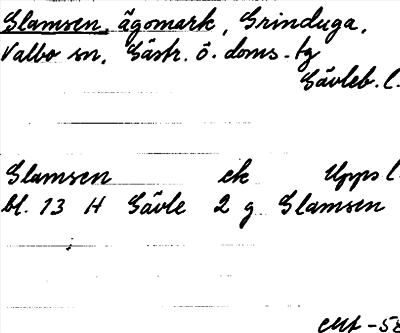 Glamsen ägomark, Grinduga,
Valbo sn. Gästr. ö. doms.-tg
Gävleb. l.
Glamsen ek Upps l.
bl. 13 H Gävle 2 g Glamsen